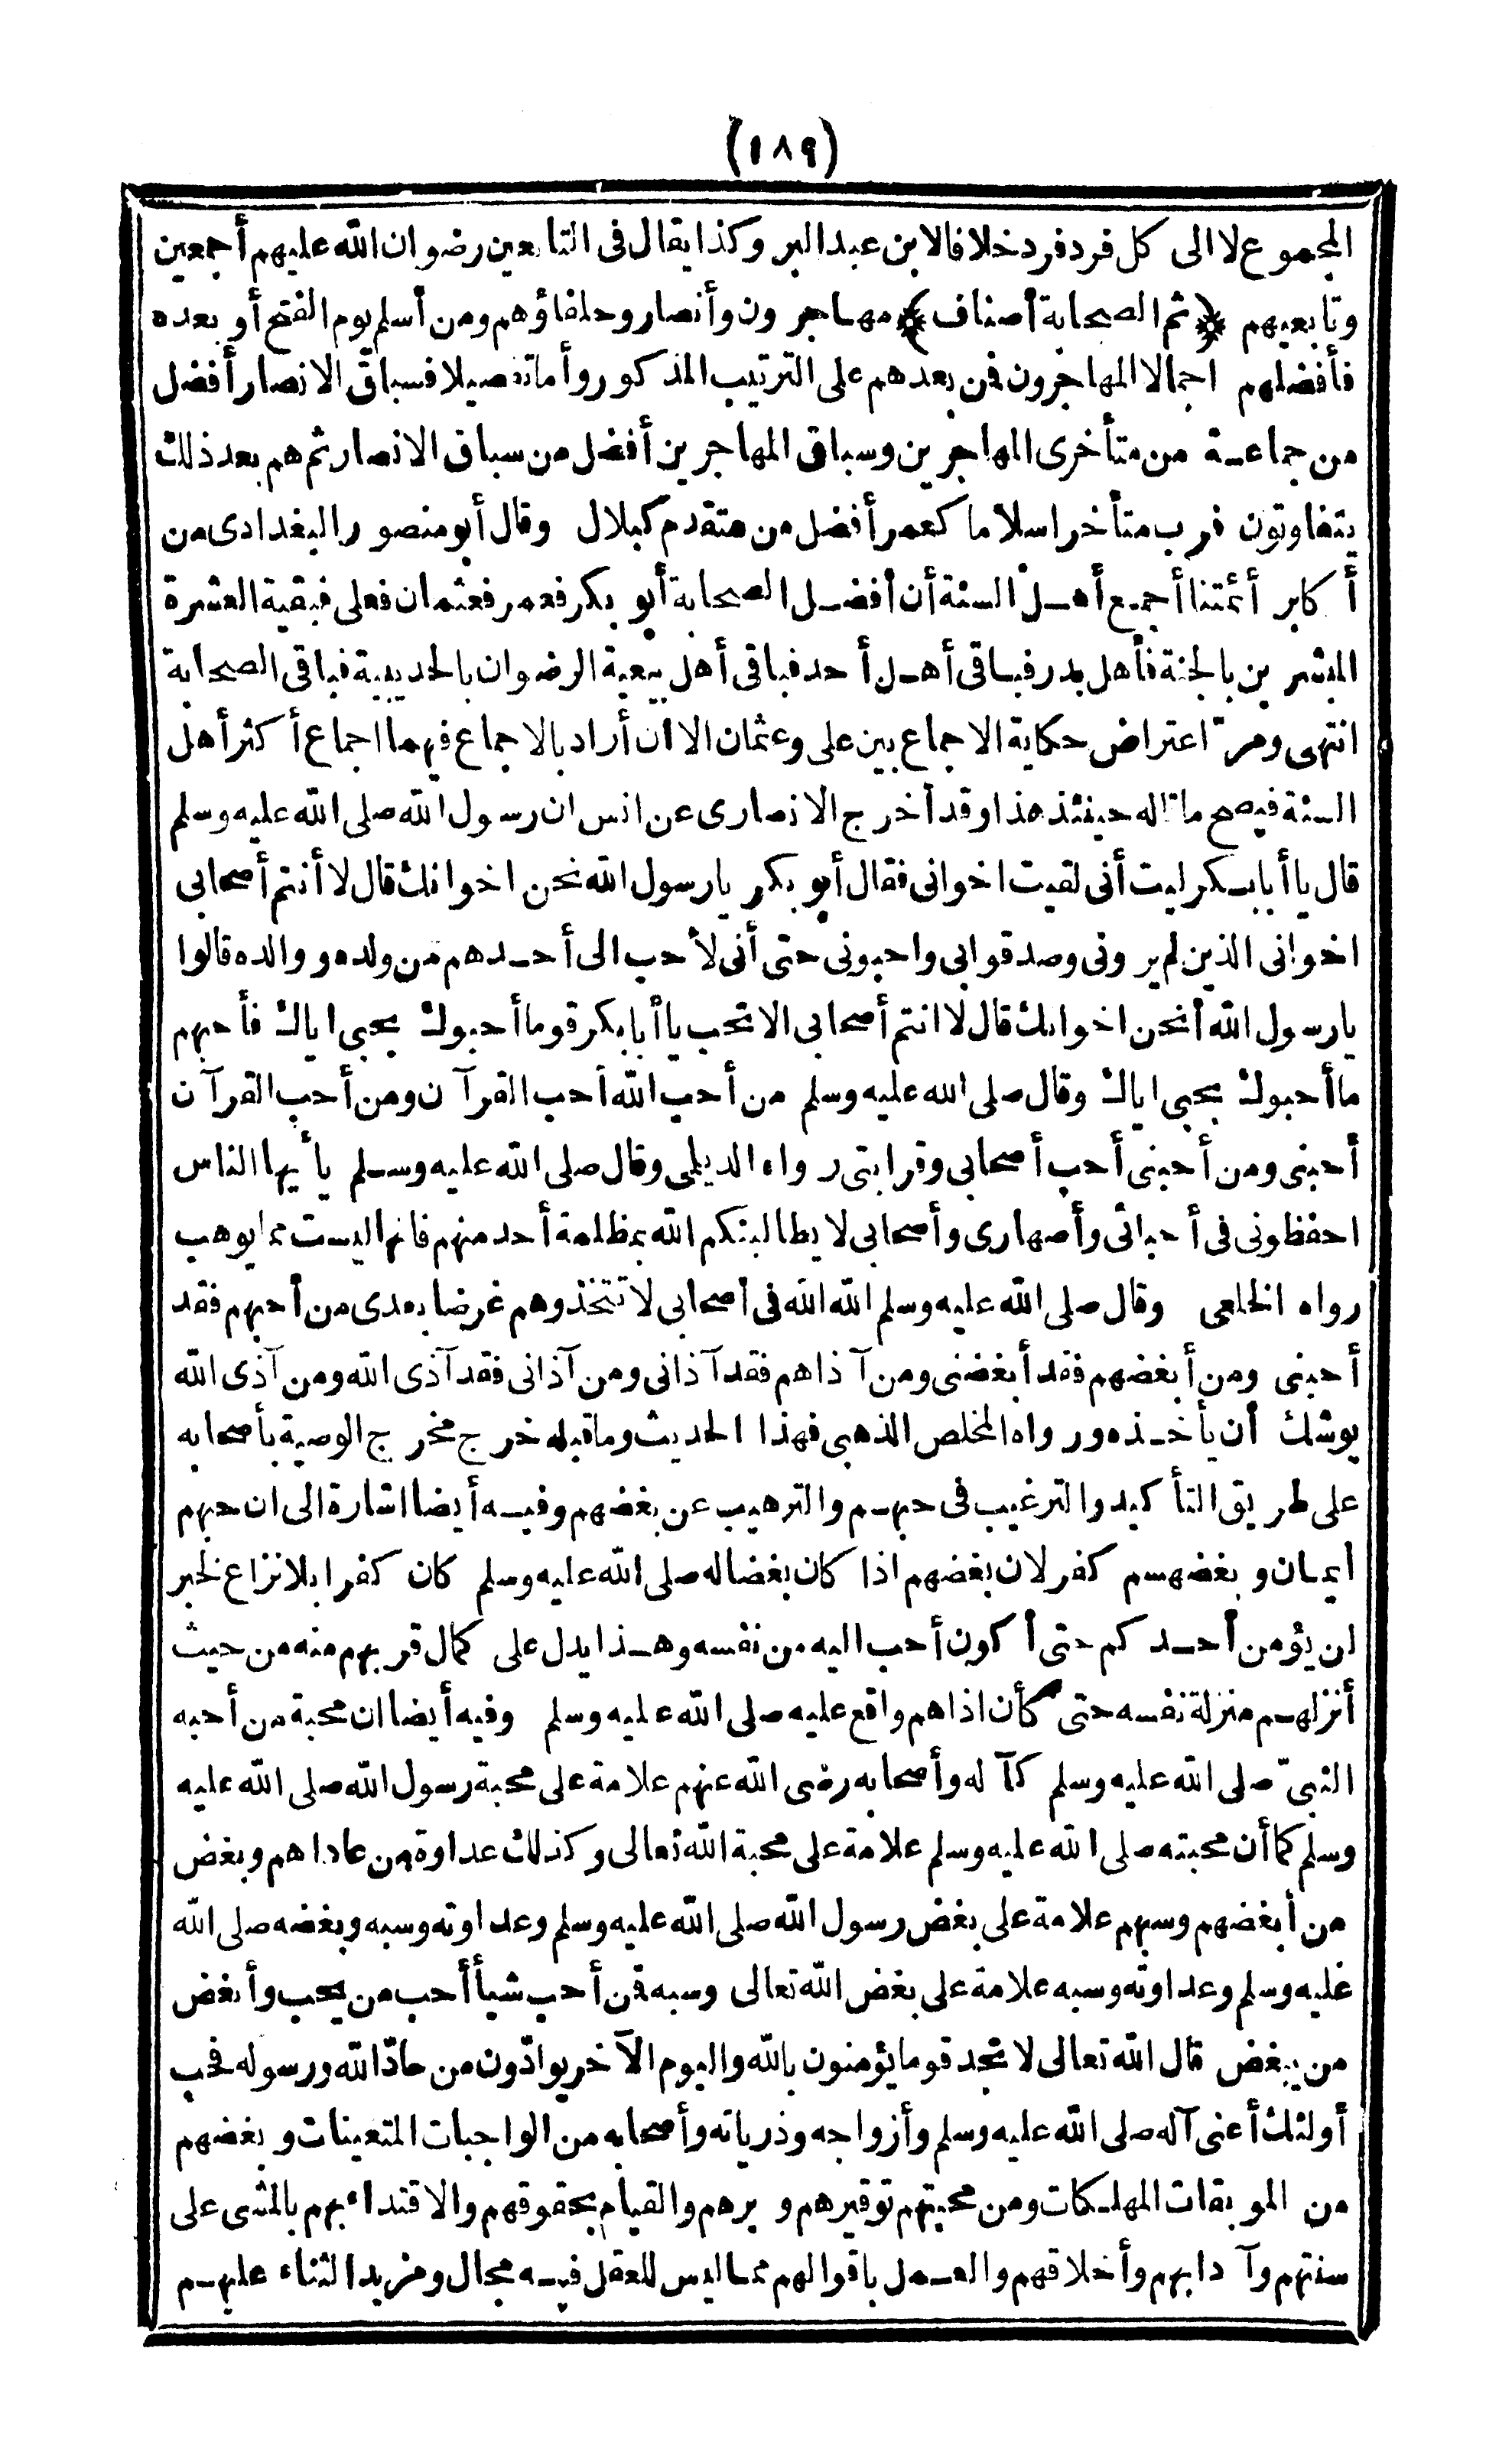 (١٨٩)
المجموع لا الى كل فرد فرد خلافا لابن عبد البر وكذا يقال فى التابعين رضوان الله عليهم أجمعين
وتابعيهم ﴿ثم الصحابة أصناف﴾ مهاجرون وأنصار وحلفاؤهم ومن أسلم يوم الفتح أو بعده
فأفضلهم اجمالا المهاجرون فمن بعدهم على الترتيب المذكور وأما تفصيلا فسباق الانصار أفضل
من جماعة من متأخرى المهاجرين وسباق المهاجرين أفضل من سباق الانصار ثم هم بعد ذلك
يتفاوتون فرب متأخر اسلاما كعمر أفضل من متقدم كبلال وقال أبو منصور البغدادى من
أكابر أئمتنا أجمع أهل السنة أن أفضل الصحابة أبو بكر فعمر فعثمان فعلى فبقية العشرة
المبشرين بالجنة فأهل بدر فباقى أهل أحد فباقى أهل بيعة الرضوان بالحديبية فباقى الصحابة
انتهى ومرّ اعتراض حكاية الاجماع بين على وعثمان الا ان أراد بالاجماع فيهما اجماع أكثر أهل
السنة فيصح ما قاله حينئذ هذا وقد أخرج الانصارى عن انس ان رسول الله صلى الله عليه وسلم
قال يا أبا بكر ليت أنى لقيت اخوانى فقال أبو بكر يا رسول الله نحن اخوانك قال لا أنتم أصحابى
اخوانى الذين لم يرونى وصدقوا بى واحبونى حتى أنى لأحب الى أحدهم من ولده ووالده قالوا
يا رسول الله أنحن اخوانك قال لا انتم أصحابى الا تحب يا أبا بكر قوما أحبوك بحبى اياك فأحبهم
ما أحبوك بحبى اياك وقال صلى الله عليه وسلم من أحب الله أحب القرآن ومن أحب القرآن
أحبنى ومن أحبنى أحب أصحابى وقرابتى رواه الديلمى وقال صلى الله عليه وسلم يا أيها الناس
احفظونى فى أحبائى وأصهارى وأصحابى لا يطالبنكم الله بمظلمة أحد منهم فانها ليست مما يوهب
رواه الخلعى وقال صلى الله عليه وسلم الله الله فى أصحابى لا تتخذوهم غرضا بعدى من أحبهم فقد
أحبنى ومن أبغضهم فقد أبغضنى ومن آذاهم فقد آذانى ومن آذانى فقد آذى الله ومن آذى الله
يوشك أن يأخذه ورواه المخلص الذهبى فهذا الحديث وما قبله خرج مخرج الوصية بأصحابه
على طريق التأكيد والترغيب فى حبهم والترهيب عن بغضهم وفيه أيضا اشارة الى ان حبهم
ايمان وبغضهم كفر لان بغضهم اذا كان بغضا له صلى الله عليه وسلم كان كفرا بلا نزاع لخبر
لن يؤمن أحدكم حتى أكون أحب اليه من نفسه وهذا يدل على كمال قربهم منه من حيث
أنزلهم منزلة نفسه حتى كأن اذاهم واقع عليه صلى الله عليه وسلم وفيه أيضا ان محبة من أحبه
النبىّ صلى الله عليه وسلم كآله وأصحابه رضى الله عنهم علامة على محبة رسول الله صلى الله عليه
وسلم كما أن محبته صلى الله عليه وسلم علامة على محبة الله تعالى وكذلك عداوة من عاداهم وبغض
من أبغضهم وسبهم علامة على بغض رسول الله صلى الله عليه وسلم وعداوته وسبه وبغضه صلى الله
عليه وسلم وعداوته وسبه علامة على بغض الله تعالى وسبه فمن أحب شيأ أحب من يحب وأبغض
من يبغض قال الله تعالى لا تجد قوما يؤمنون بالله واليوم الآخر يوادّون من حادّ الله ورسوله فحب
أولئك أعنى آله صلى الله عليه وسلم وأزواجه وذرياته وأصحابه من الواجبات المتعينات وبغضهم
من الموبقات المهلكات ومن محبتهم توقيرهم وبرهم والقيام بحقوقهم والاقتداء بهم بالمشى على
سنتهم وآدابهم وأخلاقهم والعمل باقوالهم مما ليس للعقل فيه مجال ومزيد الثناء عليهم